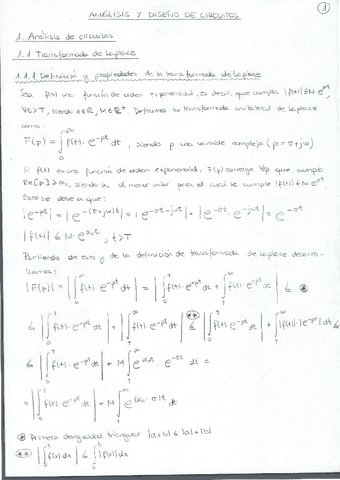 1
ANÁLISIS Y DISEÑO DE CIRCUITOS
1. Análisis de circuitos
1.1 Transformada de Laplace
1.1.1 Definición y propiedades de la transformada de Laplace
Sea f(t) una función de orden exponencial, es decir, que cumpla |f(t)| ≤ M e^αt,
∀t>T, siendo α∈ℝ, M∈ℝ⁺. Definimos su transformada unilateral de Laplace
como:
F(p) = ∫₀^∞ f(t)·e^-pt dt, siendo p una variable compleja (p = σ+jω)
Si f(t) es una función de orden exponencial, F(p) converge ∀p que cumpla
Re[p] ≥ α₀, siendo α₀ el menor valor para el cual se cumple |f(t)| ≤ M e^αt
Esto se debe a que:
|e^-pt| = |e^-(σ+jω)t| = |e^-σt-jωt| = |e^-σt · e^-jωt| = e^-σt
|f(t)| ≤ M·e^α₀t, t>T
Partiendo de esto y de la definición de transformada de Laplace desarro-
llamos:
|F(p)| = |∫₀^∞ f(t)·e^-pt dt| = |∫₀^T f(t)·e^-pt dt + ∫_T^∞ f(t)·e^-pt dt| ≤ *
≤ |∫₀^T f(t)·e^-pt dt| + |∫_T^∞ f(t)·e^-pt dt| ≤ ** |∫₀^T f(t)·e^-pt dt| + ∫_T^∞ |f(t)|·|e^-pt| dt ≤
≤ |∫₀^T f(t)·e^-pt dt| + M ∫_T^∞ e^α₀t · e^-σt dt =
= |∫₀^T f(t)·e^-pt dt| + M ∫_T^∞ e^(α₀-σ)t dt
* Primera desigualdad triangular |a+b| ≤ |a|+|b|
** |∫ₐ^b f(x) dx| ≤ ∫ₐ^b |f(x)| dx